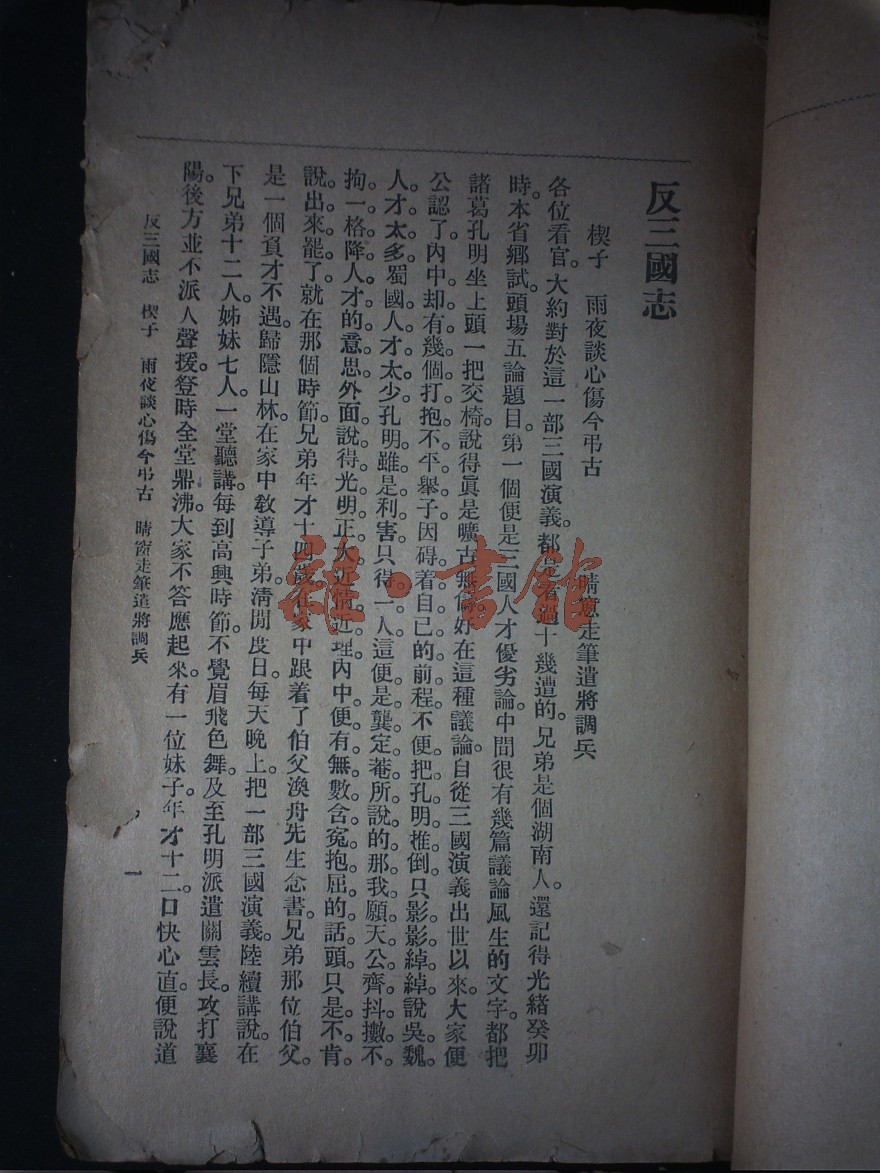 反三國志
楔子　雨夜談心傷今弔古　晴窗走筆遣將調兵
各位看官。大約對於這一部三國演義。都是看過十幾遭的。兄弟是個湖南人。還記得光緒癸卯
時。本省鄉試。頭場五論題目。第一個便是三國人才優劣論。中間很有幾篇議論風生的文字。都把
諸葛孔明坐上頭一把交椅。說得眞是曠古無儔。好在這種議論。自從三國演義出世以來。大家便
公認了。內中却有幾個打抱不平舉子。因碍着自已的前程。不便把孔明推倒。只影影綽綽說吳魏。
人才太多。蜀國人才太少。孔明雖是利害。只得一人。這便是龔定菴所說的那我願天公齊抖擻。不
拘一格降人才的意思。外面說得光明正大。近情近理。內中便有無數含冤抱屈的話頭。只是不肯
說出來罷了。就在那個時節。兄弟年才十四歲。在家中跟着了伯父渙舟先生念書。兄弟那位伯父。
是一個負才不遇。歸隱山林。在家中敎導子弟。淸閒度日。每天晚上。把一部三國演義。陸續講說。在
下兄弟十二人。姊妹七人。一堂聽講。每到高興時節。不覺眉飛色舞。及至孔明派遣關雲長。攻打襄
陽。後方並不派人聲援。登時全堂鼎沸。大家不答應起來。有一位妹子。年才十二。口快心直。便說道
反三國志　楔子　雨夜談心傷今弔古　晴窗走筆遣將調兵
一
雜·書館